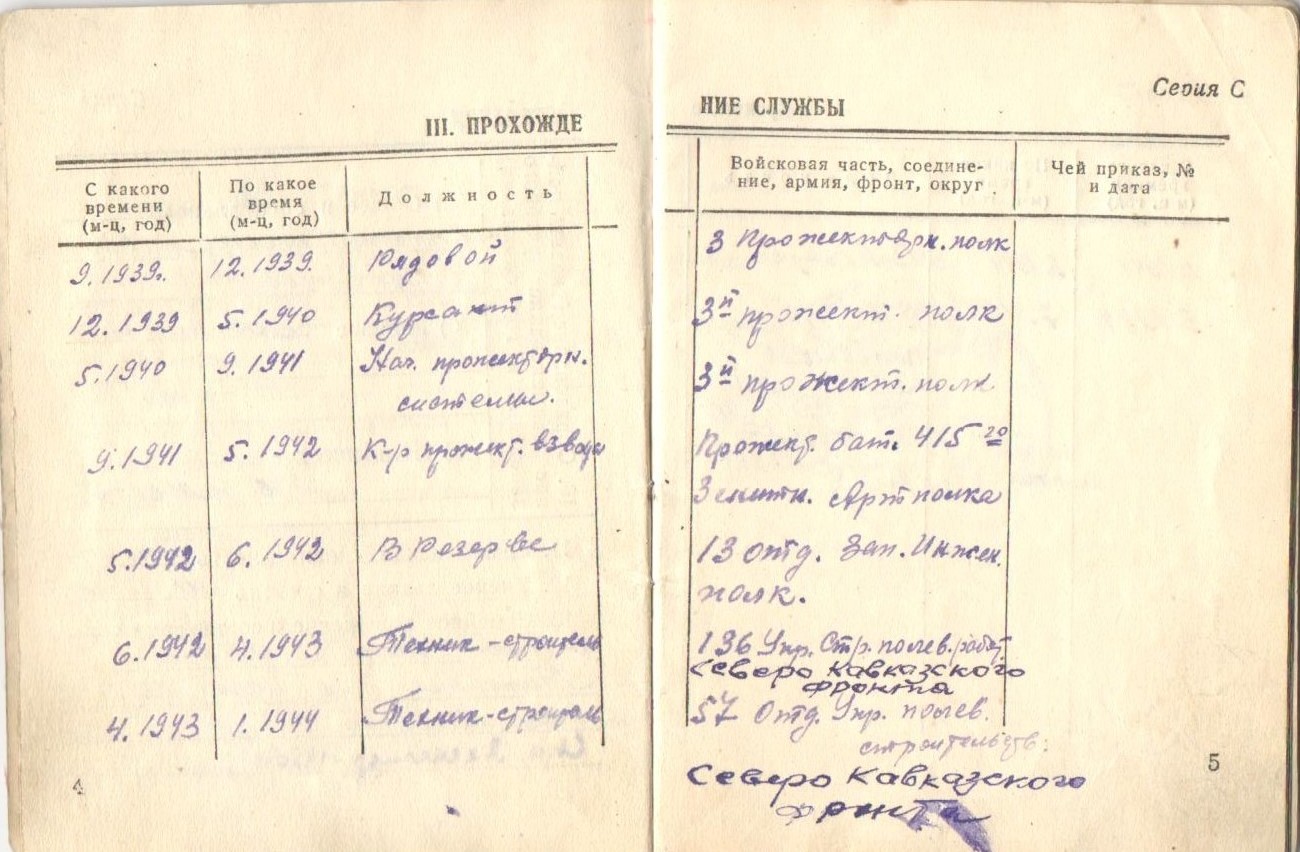 III. ПРОХОЖДЕ
С какого времени (м-ц, год)
По какое время (м-ц, год)
Должность
9.1939г.
12.1939.
Рядовой
12.1939
5.1940
Курсант
5.1940
9.1941
Нач. прожекторн.
системы.
9.1941
5.1942
К-р прожект. взвода
5.1942
6.1942
В Резерве
6.1942
4.1943
Техник-строитель
4.1943
1.1944
Техник-строитель
4
Серия С
НИЕ СЛУЖБЫ
Войсковая часть, соедине-
ние, армия, фронт, округ
Чей приказ, №
и дата
3 Прожекторн. полк
3й прожект. полк
3й прожект. полк
Прожект. бат. 415го
Зенитн. Артполка
13 отд. Зап. Инжен.
полк.
136 Упр. Стр. полев. работ
Северо Кавказского
фронта
57 Отд. Упр. полев.
строительств.
Северо Кавказского
фронта
5